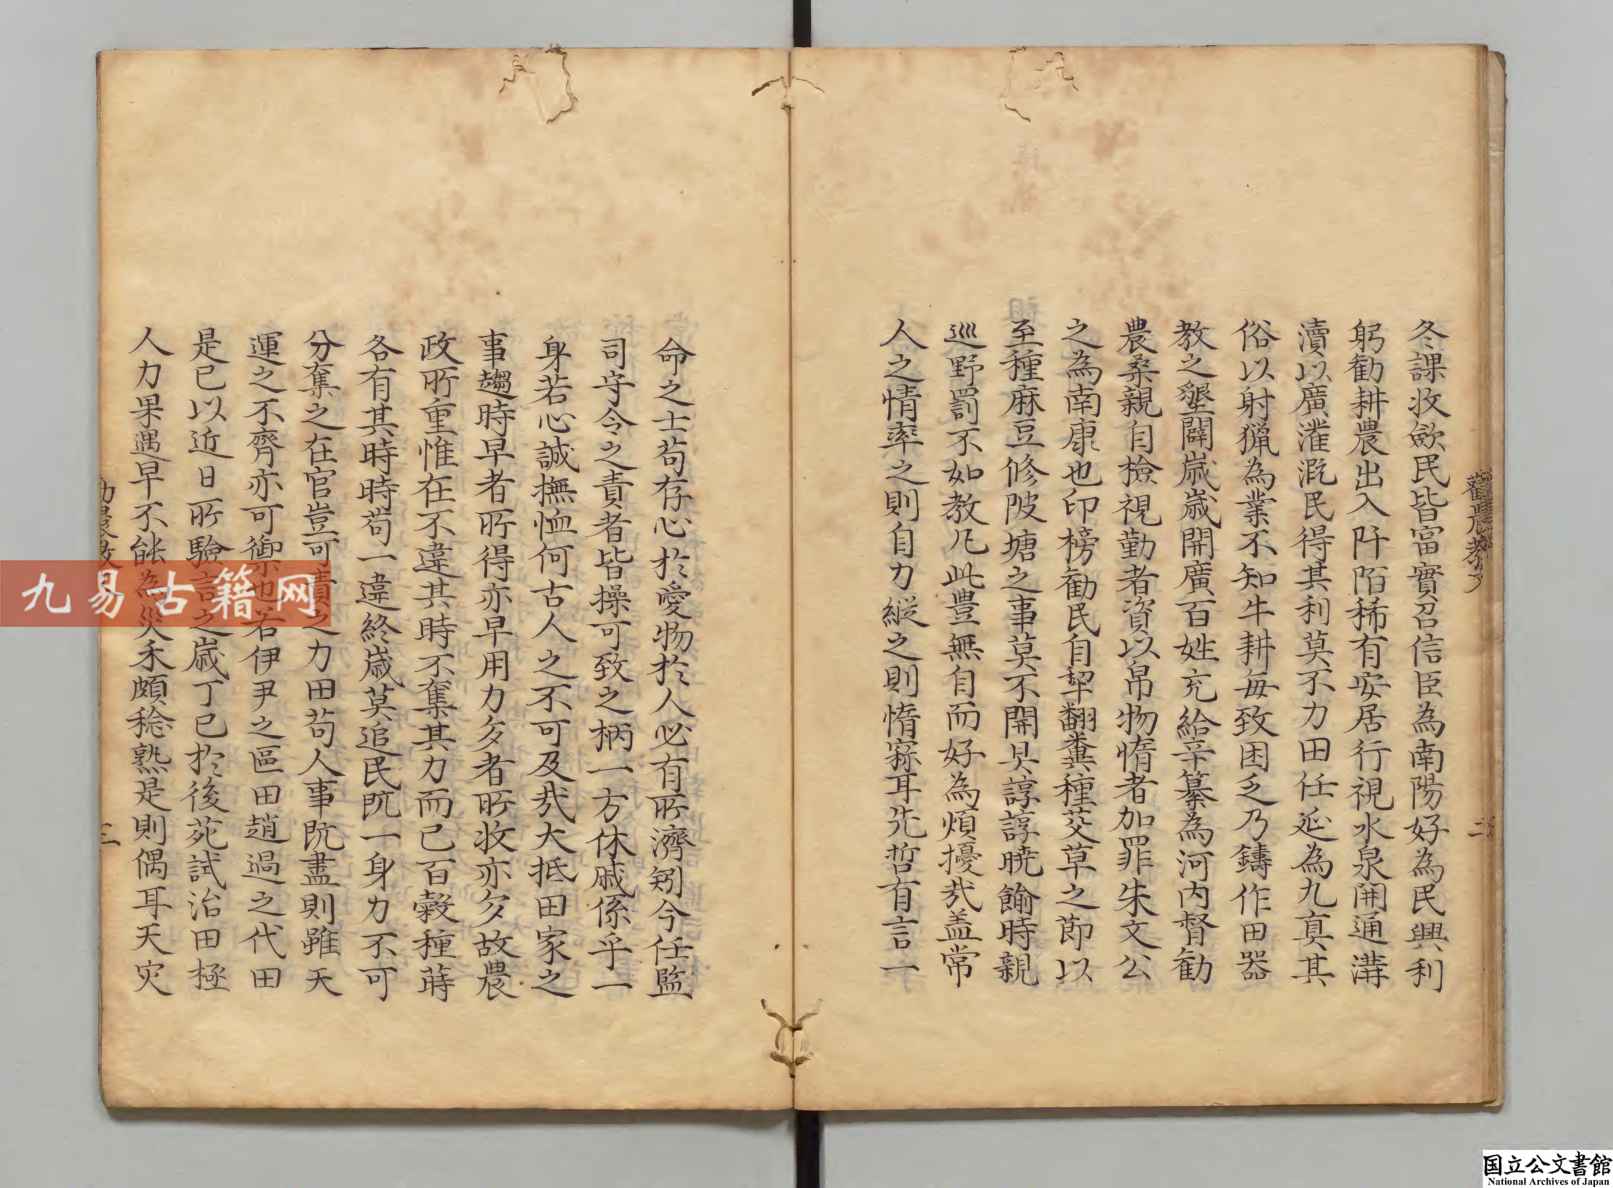 冬課收斂民皆富實召信臣為南陽好為民興利
躬勸耕農出入阡陌稀有安居行視水泉開通溝
瀆以廣灌溉民得其利莫不力田任延為九真其
俗以射獵為業不知牛耕每致困乏乃鑄作田器
教之墾闢歲歲開廣百姓充給辛纂為河内督勸
農桑親自檢視勤者資以帛物惰者加罪朱文公
之為南康也印榜勸民自犂翻糞種芟草之節以
至種麻豆修陂塘之事莫不開具諄諄曉諭時親
巡野罰不如教凡此豊無自而好為煩擾㢤盖常
人之情率之則自力縱之則惰窳耳先哲有言一
命之士苟存心於愛物於人必有所濟矧今任監
司守令之責者皆操可致之柄一方休戚係乎一
身若心誠撫恤何古人之不可及㢤大抵田家之
事趨時早者所得亦早用力多者所收亦多故農
政所重惟在不違其時不奪其力而已百穀種蒔
各有其時時苟一違終歲莫追民旣一身力不可
分奪之在官豈可責之力田苟人事旣盡則雖天
運之不齊亦可禦也若伊尹之區田趙過之代田
是已以近日所驗言之歲丁巳於後苑試治田極
人力果遇旱不能為災禾頗稔熟是則偶耳天灾
勸農教文
二
三
九易古籍网
国立公文書館
National Archives of Japan